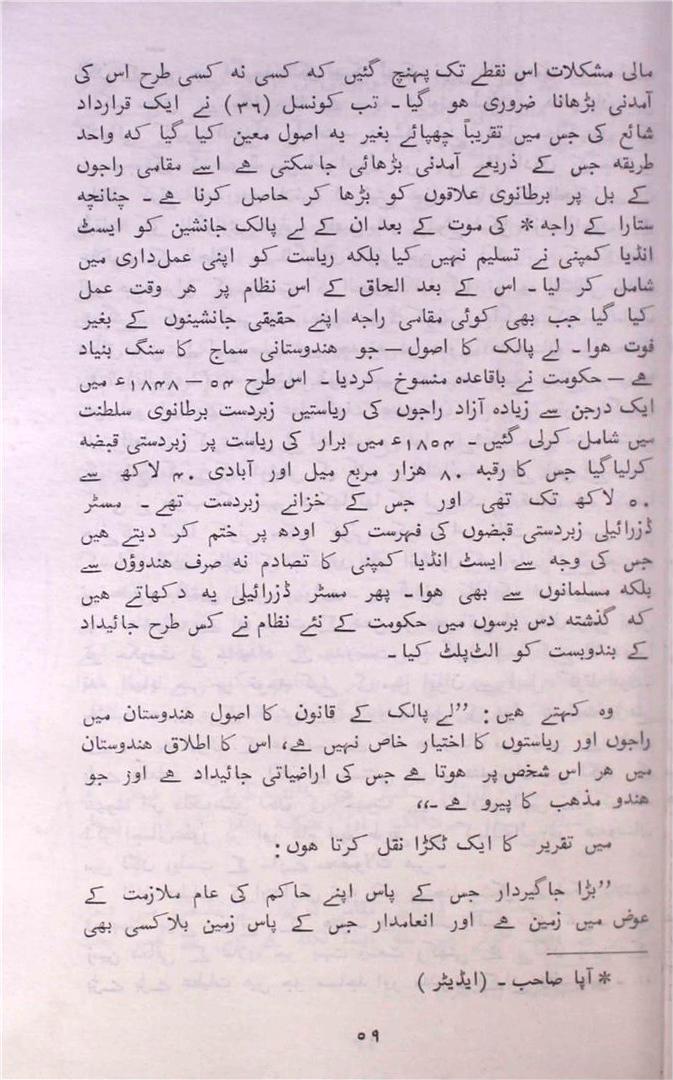 مالی مشکلات اس نقطے تک پہنچ گئیں کہ کسی نہ کسی طرح اس کی
آمدنی بڑھانا ضروری ہو گیا۔ تب کونسل (۳۶) نے ایک قرارداد
شائع کی جس میں تقریباً چھپائے بغیر یہ اصول معین کیا گیا کہ واحد
طریقہ جس کے ذریعے آمدنی بڑھائی جاسکتی ہے اسے مقامی راجوں
کے بل پر برطانوی علاقوں کو بڑھا کر حاصل کرنا ہے۔ چنانچہ
ستارا کے راجہ* کی موت کے بعد ان کے لے پالک جانشین کو ایسٹ
انڈیا کمپنی نے تسلیم نہیں کیا بلکہ ریاست کو اپنی عمل داری میں
شامل کر لیا۔ اس کے بعد الحاق کے اس نظام پر ہر وقت عمل
کیا گیا جب بھی کوئی مقامی راجہ اپنے حقیقی جانشینوں کے بغیر
فوت ہوا۔ لے پالک کا اصول — جو ہندوستانی سماج کا سنگ بنیاد
ہے — حکومت نے باقاعدہ منسوخ کردیا۔ اس طرح ۵۴ – ۱۸۴۸ء میں
ایک درجن سے زیادہ آزاد راجوں کی ریاستیں زبردست برطانوی سلطنت
میں شامل کرلی گئیں۔ ۱۸۵۴ء میں برار کی ریاست پر زبردستی قبضہ
کرلیا گیا جس کا رقبہ ۸۰ ہزار مربع میل اور آبادی ۴۰ لاکھ سے
۵۰ لاکھ تک تھی اور جس کے خزانے زبردست تھے۔ مسٹر
ڈزرائیلی زبردستی قبضوں کی فہرست کو اودھ پر ختم کر دیتے ہیں
جس کی وجہ سے ایسٹ انڈیا کمپنی کا تصادم نہ صرف ہندوؤں سے
بلکہ مسلمانوں سے بھی ہوا۔ پھر مسٹر ڈزرائیلی یہ دکھاتے ہیں
کہ گذشتہ دس برسوں میں حکومت کے نئے نظام نے کس طرح جائیداد
کے بندوبست کو الٹ پلٹ کیا۔
وہ کہتے ہیں: ”لے پالک کے قانون کا اصول ہندوستان میں
راجوں اور ریاستوں کا اختیار خاص نہیں ہے، اس کا اطلاق ہندوستان
میں ہر اس شخص پر ہوتا ہے جس کی اراضیاتی جائیداد ہے اوز جو
ہندو مذہب کا پیرو ہے۔،،
میں تقریر کا ایک ٹکڑا نقل کرتا ہوں:
”بڑا جاگیردار جس کے پاس اپنے حاکم کی عام ملازمت کے
عوض میں زمین ہے اور انعامدار جس کے پاس زمین بلاکسی بھی
* آپا صاحب۔ (ایڈیٹر)
۵۹